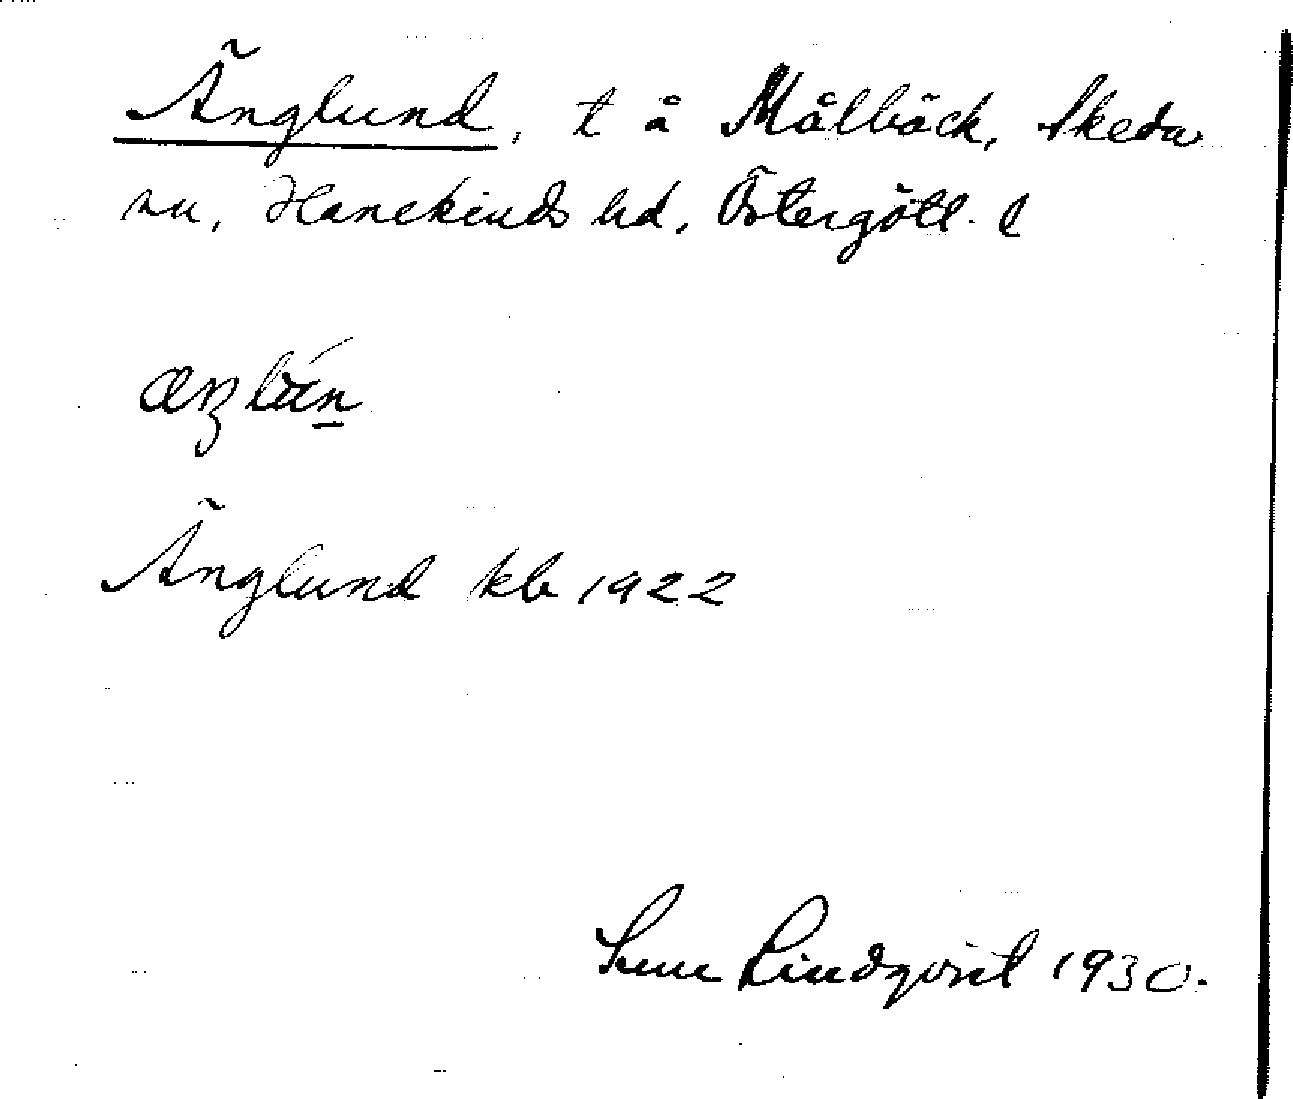 Änglund, t å Målbäck, Skeda
sn, Hanekinds hd, Östergötl. l
Änglund kb 1922
Sune Lindqvist 1930.